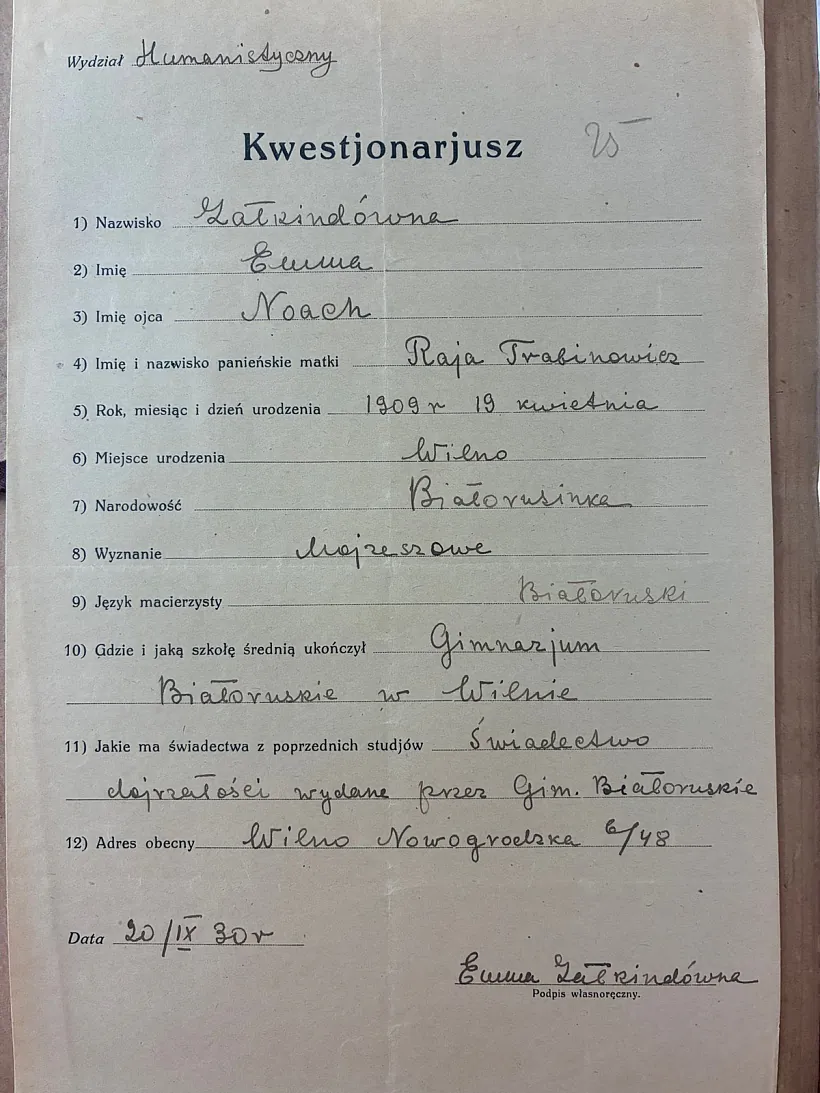 Wydział Humanistyczny
Kwestjonarjusz 25
1) Nazwisko Załkindówna
2) Imię Emma
3) Imię ojca Noach
4) Imię i nazwisko panieńskie matki Raja Trabinowicz
5) Rok, miesiąc i dzień urodzenia 1909 r 19 kwietnia
6) Miejsce urodzenia Wilno
7) Narodowość Białorusinka
8) Wyznanie Mojżeszowe
9) Język macierzysty Białoruski
10) Gdzie i jaką szkołę średnią ukończył Gimnazjum
Białoruskie w Wilnie
11) Jakie ma świadectwa z poprzednich studjów Świadectwo
dojrzałości wydane przez Gim. Białoruskie
12) Adres obecny Wilno Nowogrodzka 6/48
Data 20/IX 30 r
Emma Załkindówna
Podpis własnoręczny.